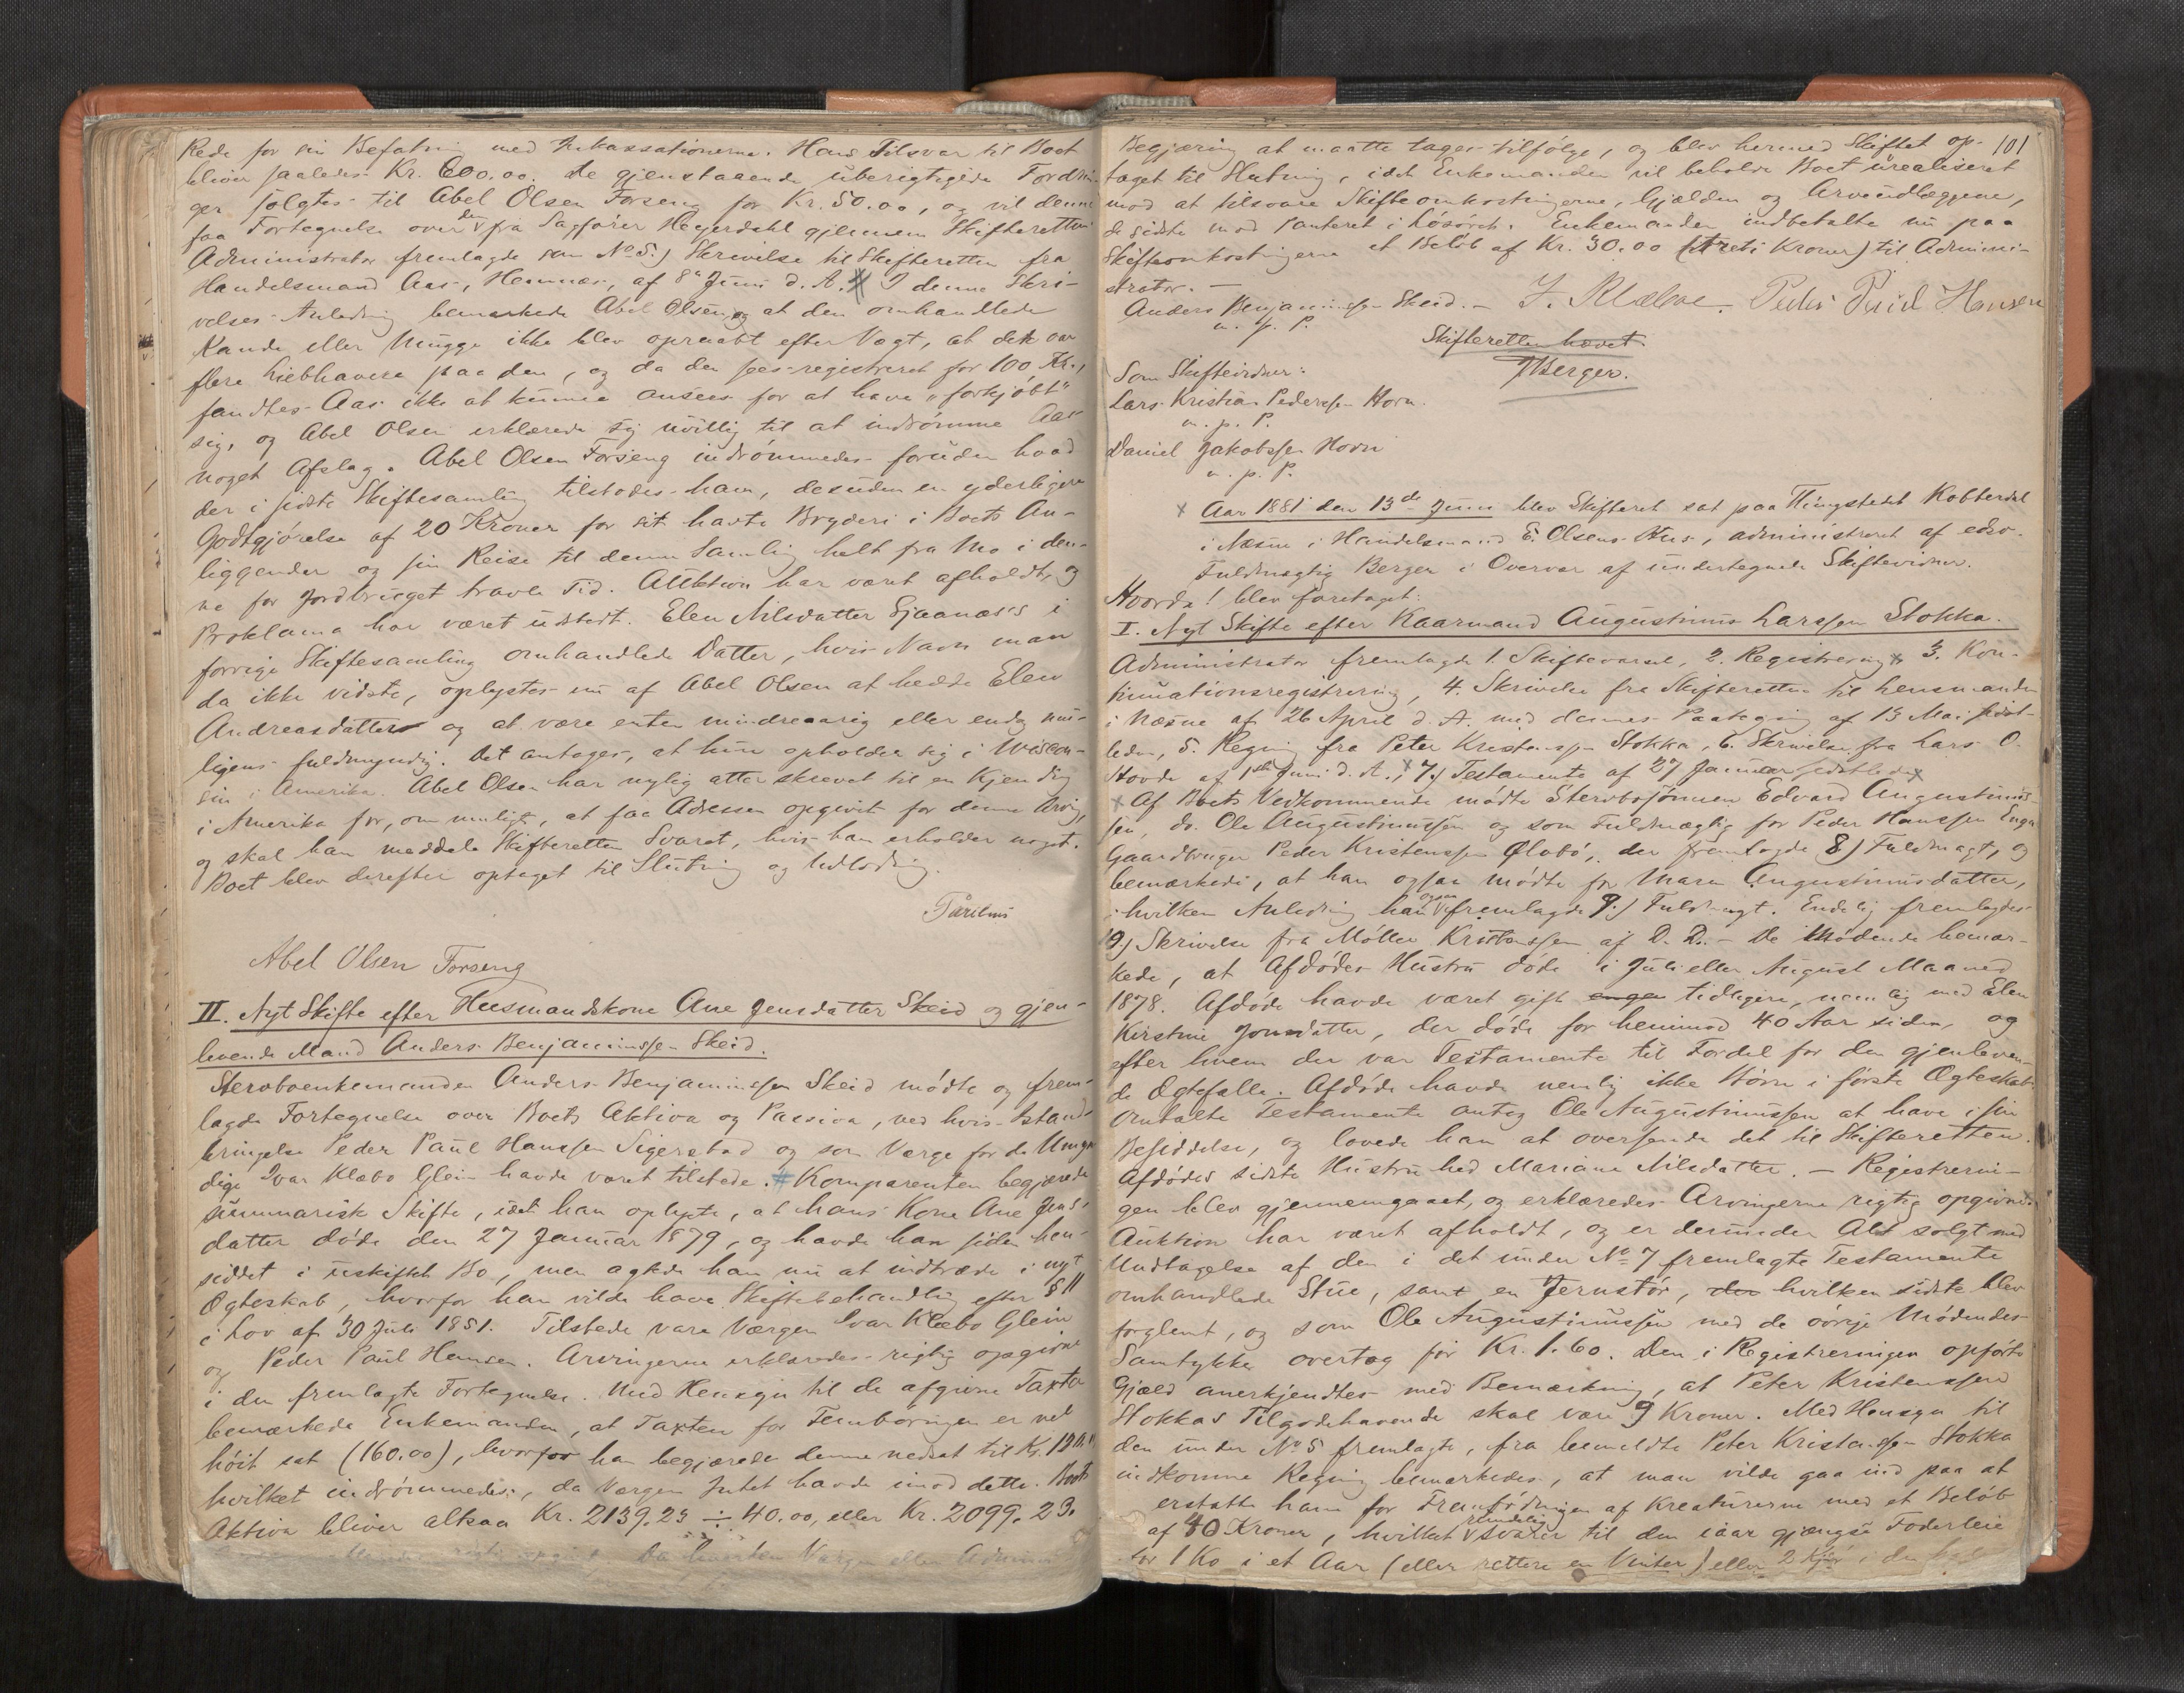 Rede for sin Befatning med Inkassationerne. Hans Tilsvar til Boet
bliver saaledes Kr. 600.00. De gjenstaaende uberigtigede Fordrin-
ger solgtes til Abel Olsen Forseng for Kr. 50.00, og vil denne
faa Fortegnelse over dem fra Sagfører Heyerdahl gjennem Skifteretten
Administrator fremlagde som No 5.) Skrivelse til Skifteretten fra
Handelsmand Aas, Hemnæs, af 8de Juni d. A. # I denne Skri-
velses Anledning bemærkede Abel Olsen, at den omhandlede
Kande eller Mugge ikke blev opraabt efter Vægt, at der var
flere Liebhavere paa den, og da den sees registreret for 100 Kr.,
fandtes Aas ikke at kunne ansees for at have "forkjøbt"
sig, og Abel Olsen erklærede sig uvillig til at indrømme Aas
noget Afslag. Abel Olsen Forseng indrømmedes foruden hvad
der i sidste Skiftesamling tilstodes ham, desuden en yderligere
Godtgjørelse af 20 Kroner for sit havte Bryderi i Boets An-
liggender og sin Reise til denne Samling helt fra Mo i den-
ne for Jordbruget travle Tid. Auktion har været afholdt, og
Proklama har været udstedt. Elen Nilsdatter Sjaanæs's i
forrige Skiftesamling omhandlede Datter, hvis Navn man
da ikke vidste, oplystes nu af Abel Olsen at hedde Elen
Andreasdatter og at være enten mindreaarig eller endog nu-
ligens fuldmyndig. Det antages, at hun opholder sig i Wiscon-
sin i Amerika. Abel Olsen har nylig atter skrevet til en Kjending
i Amerika for, om muligt, at faa Adressen opgivet for denne Arving,
og skal han meddele Skifteretten Svaret, hvis han erholder noget.
Boet blev derefter optaget til Slutning og Udlodning.
Abel Olsen Forseng
II. Nyt Skifte efter Husmandskone Ane Jensdatter Skeid og gjen-
levende Mand Anders Benjaminssen Skeid.
Stervboenkemanden Anders Benjaminssen Skeid mødte og frem-
lagde Fortegnelse over Boets Aktiva og Passiva, ved hvis Istand-
bringelse Peder Paul Hanssen Sigerstad og som Værge for de Umyn-
dige Ivar Klæbo Glein havde været tilstede. # Komparenten begjærede
summarisk Skifte, idet han oplyste, at hans Kone Ane Jens-
datter døde den 27 Januar 1879, og havde han siden hen-
siddet i uskiftet Bo, men agtede han nu at indtræde i nyt
Ægteskab, hvorfor han vilde have Skiftebehandling efter § 11
i Lov af 30 Juli 1851. Tilstede vare Værgen Ivar Klæbo Glein
og Peder Paul Hansen. Arvingerne erklæredes rigtig opgivne
i den fremlagte Fortegnelse. Med Hensyn til de afgivne Taxter
bemærkede Enkemanden, at Taxten for Femböringen er vel
höit sat (160.00), hvorfor han begjærede denne nedsat til Kr. 120.00
hvilket indrømmedes, da Værgen Intet havde imod dette. Boets
Aktiva bliver altsaa Kr. 2139.23 ÷ 40.00, eller Kr. 2099.23.
rigtig opgivet. Da hverken Værgen eller Admini-
101
Begjæring at maatte tages tilfølge, og blev hermed Skiftet op-
taget til Slutning, idet Enkemanden vil beholde Boet urealiseret
mod at tilsvare Skifteomkostningerne, Gjælden og Arveudlæggene,
de sidste mod Panteret i Løsöret. Enkemanden indbetalte nu paa
Skifteomkostningerne et Beløb af Kr. 30.00 (Treti Kroner) til Admini-
strator. -
Anders Benjaminssen Skeid. - I. Klæboe. Peder Paul Hansen
m. p. P.
Skifteretten hævet.
JBerger.
Som Skiftevidner:
Lars Kristian Pederssen Horn.
m. p. P.
Daniel Jakobssen Horn
m. p. P.
x Aar 1881 den 13de Juni blev Skifteret sat paa Thingstedet Kobberdal
i Næsne i Handelsmand E. Olsens Hus, administreret af edsv.
Fuldmægtig Berger i Overvær af undertegnede Skiftevidner.
Hvorda! blev foretaget:
I. Nyt Skifte efter Kaarmand Augustinus Larssen Stokka.
Administrator fremlagde 1. Skiftevarsel, 2. Registrering x 3. Kon-
tinuationsregistrering, 4. Skrivelse fra Skifteretten til Lensmanden
i Næsne af 26 April d. A. med dennes Paategning af 13 Mai sidst-
leden, 5. Regning fra Peter Kristenssen Stokka, 6. Skrivelse fra Lars O.
Hovde af 1ste Juni d. A., x 7.) Testamente af 27 Januar sidstleden x
x Af Boets Vedkommende mødte Stervbosønnen Edvard Augustinus-
sen, do. Ole Augustinussen og som Fuldmægtig for Peder Hanssen Enga
Gaardbruger Peder Kristenssen Ølvbø, der fremlagde 8) Fuldmagt, og
bemærkede, at han ogsaa mødte for Maren Augustinusdatter,
i hvilken Anledning han ogsaa fremlagde 9.) Fuldmagt. Endelig fremlagdes
10) Skrivelse fra Møller Kristenssen af D. D. - De Mødende bemær-
kede, at Afdødes Hustru døde i Juli eller August Maaned
1878. Afdøde havde været gift engn tidligere, nemlig med Elen
Kirstine Jonsdatter, der døde for henimod 40 Aar siden, og
efter hvem der var Testamente til Fordel for den gjenleven-
de Ægtefælle. Afdøde havde nemlig ikke Börn i første Ægteskab.
Omtalte Testamente antog Ole Augustinussen at have i sin
Besiddelse, og lovede han at oversende det til Skifteretten.
Afdødes sidste Hustru hed Mariane Nilsdatter. - Registrerin-
gen blev gjennemgaaet, og erklæredes Arvingerne rigtig opgivne.
Auktion har været afholdt, og er derunder Alt solgt med
Undtagelse af den i det under No 7 fremlagte Testamente
omhandlede Stue, samt en Jernstör, der hvilken sidste blev
forglemt, og som Ole Augustinussen med de øvrige Mødendes
Samtykke overtog for Kr. 1.60. Den i Registreringen opførte
Gjæld anerkjendtes med Bemærkning, at Peter Kristenssen
Stokkas Tilgodehavende skal være 9 Kroner. Med Hensyn til
den under No 5 fremlagte, fra bemeldte Peter Kristenssen Stokka
indkomne Regning bemærkedes, at man vilde gaa ind paa at
erstatte ham for Fremfødningen af Kreaturerne med et Beløb
af 40 Kroner, hvilket rundelig svarer til den iaar gjængse Foderleie
for 1 Ko i et Aar (eller rettere en Vinter) eller 2 Kjør i den